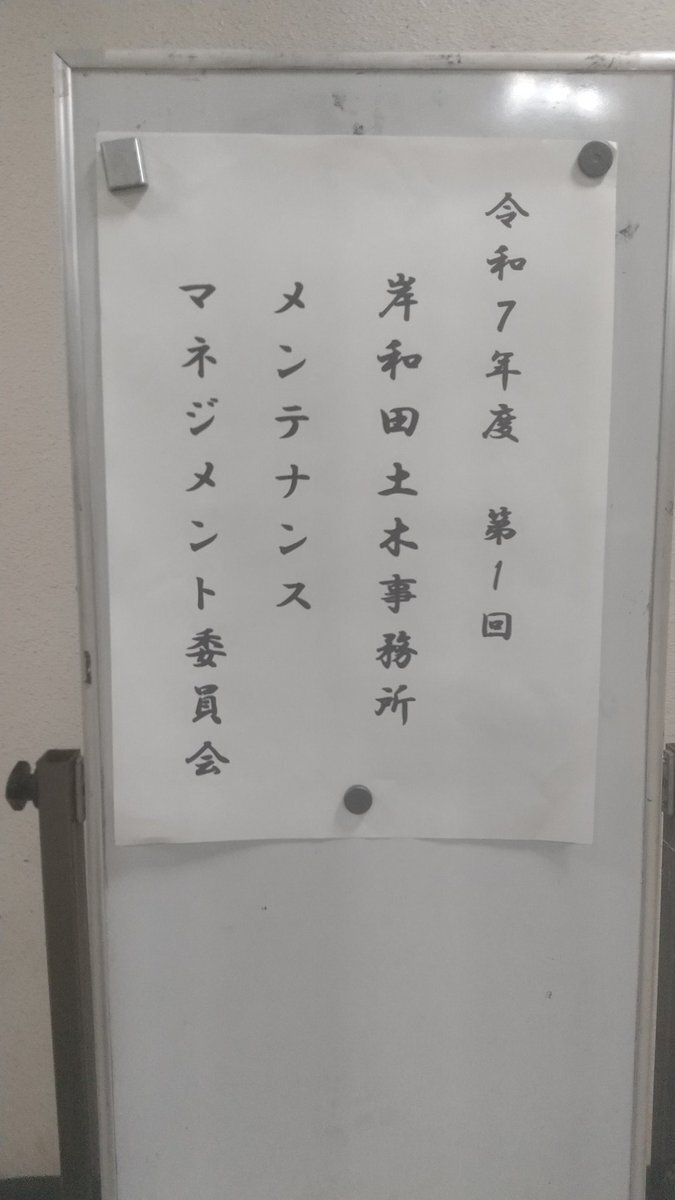 令和7年度　第1回
岸和田土木事務所
メンテナンス
マネジメント委員会